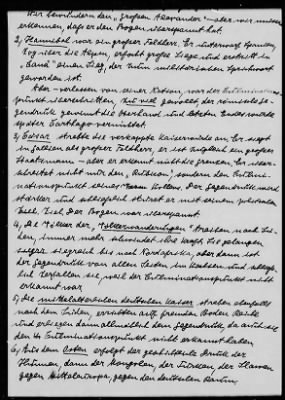 Wir bewundern den "großen Alexander" – aber wir müssen
erkennen, daß er den Bogen überspannt hat.
2) Hannibal war ein großer Feldherr. Er
zog über die Alpen, erfocht große Siege und erstritt in
"Cannä" einen Sieg, der zum militärischen Sprichwort
geworden ist.
Aber – verlassen von seiner Nation, war der Culminations-
punkt überschritten. Zu viel gewollt, der römische Ge-
gendruck gewinnt die Oberhand und
später Carthago vernichtet.
3) Cäsar strebte die verkappte Kaiserwürde an. Er siegt
in Gallien als großer Feldherr, er ist zugleich ein großer
Staatsmann – aber er erkennt nicht die Grenzen. Er über-
schreitet nicht nur den "Rubicon", sondern den Culmi-
nationspunkt seines Wollens. Der Gegendruck wird
stärker und schließlich stürzt er mit seinem
Ziel. Der Bogen war überspannt.
4) Die Völker der "Völkerwanderungen" streben nach Sü-
den, immer mehr schwindet ihre Kraft. Sie gelangen
sogar siegreich bis nach Nordafrika, aber dann ist
der Gegendruck von allen Seiten im Wachsen und schließ-
lich verfallen sie, weil der Culminationspunkt nicht
erkannt war.
5) Die mittelalterlichen deutschen Kaiser streben ebenfalls
nach dem Süden, errichten auf fremdem Boden Reiche
und erliegen dann allmählich dem Gegendruck, da auch sie
den Culminationspunkt nicht erkannt haben.
6) Aus dem Osten erfolgt der geschichtliche Druck der
Hunnen, dann der Mongolen, der Türken, der Slawen
gegen Mitteleuropa, gegen den deutschen Raum.